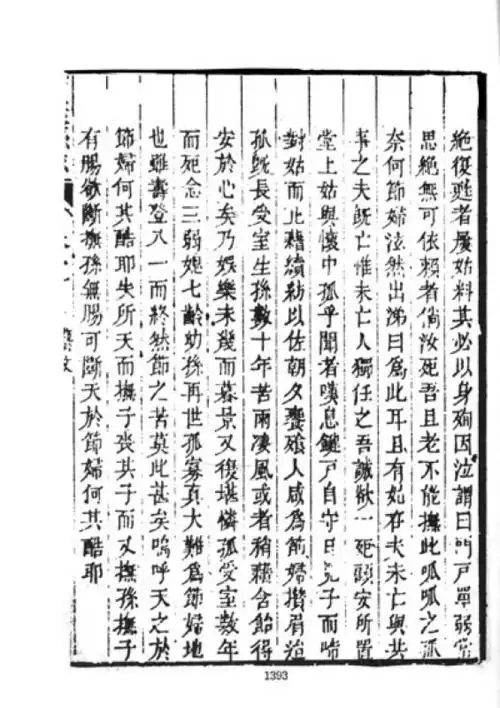 絶復甦者屢姑料其必以身殉因泣謂曰門戸單弱常
思絶無可依賴者倘汝死吾且老不能撫此呱呱之孤
奈何節婦泫然出涕曰為此耳且有姑在夫未亡與共
事之夫既亡惟未亡人獨任之吾誠欲一死頭安所置
堂上姑與懷中孤乎聞者嘆息鍵戸自守日見子而啼
對姑而止藉績紡以佐朝夕饔飱人咸為節婦攢眉迨
孤既長受室生孫數十年苦雨凄風或者稍藉含飴得
安於心矣乃娛樂未幾而暮景又復堪憐孤受室數年
而死念三弱媳七齡幼孫再世孤寡真大難為節婦地
也雖壽登八一而終然節之苦莫此甚矣嗚呼天之於
節婦何其酷耶失所天而撫子喪其子而又撫孫撫子
有腸欲斷撫孫無腸可斷天於節婦何其酷耶
1393